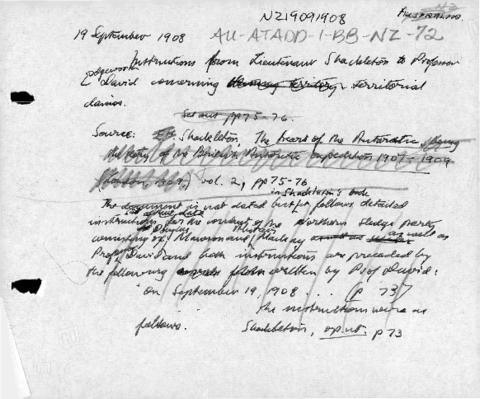 NZ19091908
NZ
AUSTRALIA
19 September 1908 AU-ATADD-1-BB-NZ-72
Instructions from Lieutenant Shackleton to Professor
Edgeworth David concerning territory territorial
claims.
Set out pp 75-76.
Source: Shackleton, The heart of the Antarctic,
the story of the British Antarctic expedition 1907-1909
vol. 2, pp 75-76
in Shackleton's book
The document is not dated but follows detailed
instructions for the conduct of the Northern Sledge Party
consisting of Douglas Mawson and Mackay as well as
Prof David and both instructions are preceded by
the following written by Prof David:
"On September 19, 1908 ... (p 73)
The instructions were as
follows.
Shackleton, op.cit. p 73